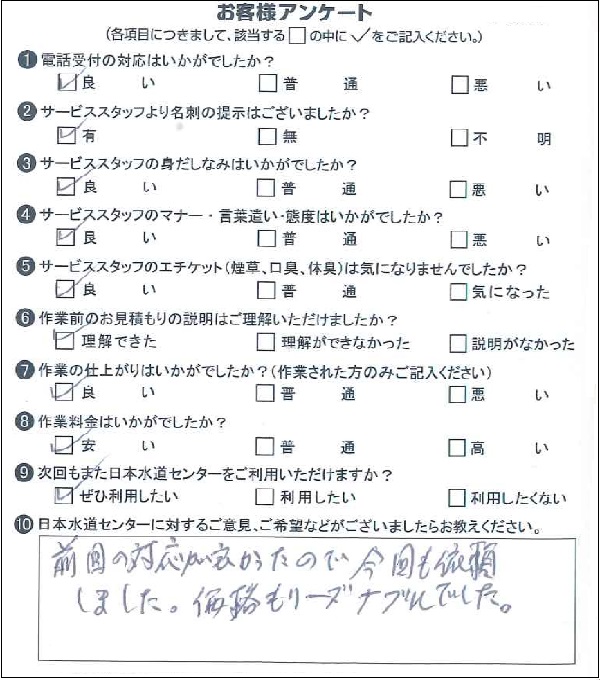 お客様アンケート
(各項目につきまして、該当する□の中に✓をご記入ください。)
❶ 電話受付の対応はいかがでしたか?
☑良い □普通 □悪い
❷ サービススタッフより名刺の提示はございましたか?
☑有 □無 □不明
❸ サービススタッフの身だしなみはいかがでしたか?
☑良い □普通 □悪い
❹ サービススタッフのマナー・言葉遣い・態度はいかがでしたか?
☑良い □普通 □悪い
❺ サービススタッフのエチケット(煙草、口臭、体臭)は気になりませんでしたか?
☑良い □普通 □気になった
❻ 作業前のお見積もりの説明はご理解いただけましたか?
☑理解できた □理解ができなかった □説明がなかった
❼ 作業の仕上がりはいかがでしたか?(作業された方のみご記入ください)
☑良い □普通 □悪い
❽ 作業料金はいかがでしたか?
☑安い □普通 □高い
❾ 次回もまた日本水道センターをご利用いただけますか?
☑ぜひ利用したい □利用したい □利用したくない
❿ 日本水道センターに対するご意見、ご希望などがございましたらお教えください。
前回の対応が良かったので今回も依頼
しました。価格もリーズナブルでした。